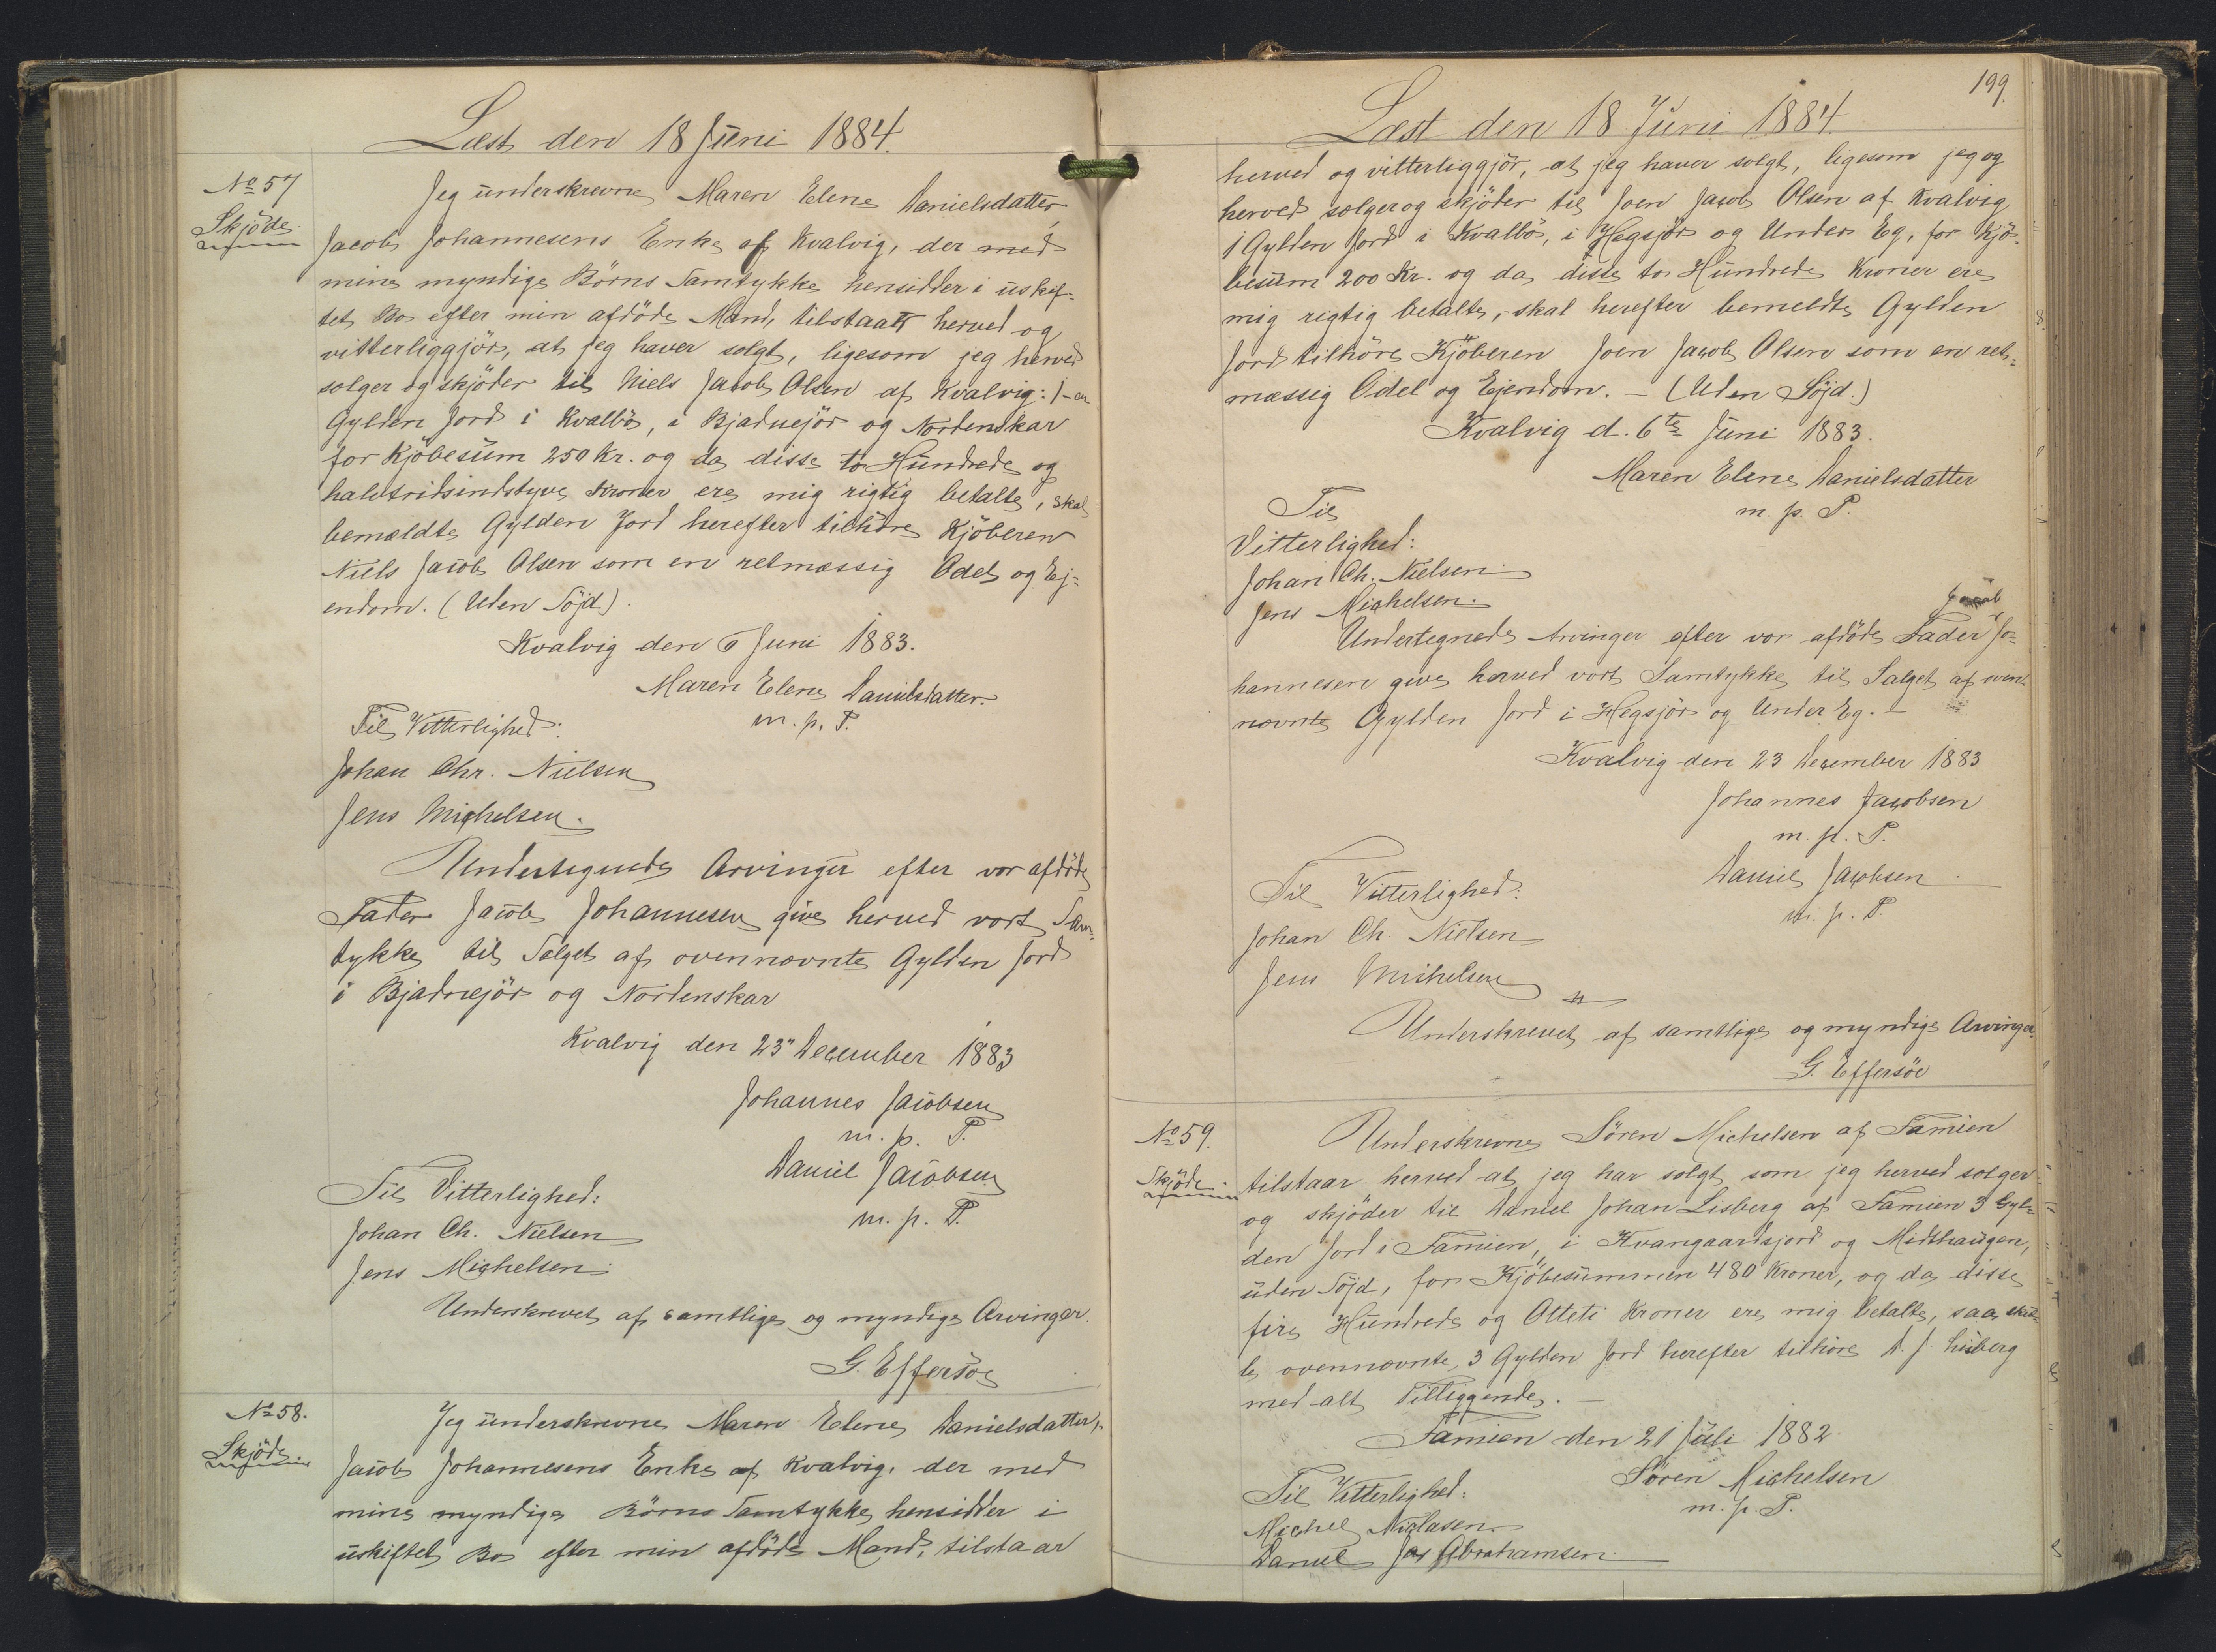 Læst den 18 Juni 1884.
No 57
Skjöde
Jeg underskrevne Maren Elene Danielsdatter,
Jacob Johannesens Enke af Kvalvig, der med
mine myndige Börns Samtykke hensidder i uskif-
tet Bo efter min afdöde Mand, tilstaar herved og
vitterliggjör, at jeg haver solgt, ligesom jeg herved
sælger og skjöder til Niels Jacob Olsen af Kvalvig: 1-en
Gylden Jord i Kvalbö, i Bjadnejör og Nordenskar
for Kjöbesum 250 Kr. og da disse to Hundrede og
halvtridsindstyve Kroner ere mig rigtig betalte, skal
bemældte Gylden Jord herefter tilhöre Kjöberen
Niels Jacob Olsen som en retmæssig Odel og Ej-
endom. (Uden Söjd).
Kvalvig den 6 Juni 1883.
Maren Elene Danielsdatter.
m. p. P.
Til Vitterlighed:
Johan Chr. Nielsen
Jens Michelsen.
Undertegnede Arvinger efter vor afdöde
Fader Jacob Johannesen give herved vort Sam-
tykke til Salget af ovennævnte Gylden Jord
i Bjadnejör og Nordenskar
Kvalvig den 23" December 1883
Johannes Jacobsen
m. p. P.
Daniel Jacobsen
m. p. P.
Til Vitterlighed:
Johan Ch. Nielsen
Jens Michelsen
Underskrevet af samtlige og myndige Arvinger.
G. Effersöe
No 58.
Skjöde
Jeg underskrevne Maren Elene Danielsdatter,
Jacob Johannesens Enke af Kvalvig, der med
mine myndige Börns Samtykke hensidder i
uskiftet Bo efter min afdöde Mand, tilstaar
199.
Læst den 18 Juni 1884.
herved og vitterliggjör, at jeg haver solgt, ligesom jeg og
herved sælger og skjöder til Joen Jacob Olsen af Kvalvig
1 Gylden Jord i Kvalbö, i Hegsjör og Under Eg, for Kjö-
besum 200 Kr. og da disse to Hundrede Kroner ere
mig rigtig betalte, skal herefter bemeldte Gylden
Jord tilhöre Kjöberen Joen Jacob Olsen som en ret-
mæssig Odel og Ejendom. - (Uden Söjd.)
Kvalvig d. 6te Juni 1883.
Maren Elene Danielsdatter
m. p. P.
Til
Vitterlighed:
Johan Ch. Nielsen
Jens Michelsen.
Jacob
Undertegnede Arvinger efter vor afdöde Fader Jo-
hannesen give herved vort Samtykke til Salget af oven-
nævnte Gylden Jord i Hegsjör og Under Eg. -
Kvalvig den 23 December 1883
Johannes Jacobsen
m. p. P.
Daniel Jacobsen
m. p. P.
Til Vitterlighed:
Johan Ch. Nielsen
Jens Michelsen
Underskrevet af samtlige og myndige Arvinger.
G. Effersöe
No 59.
Skjöde.
Underskrevne Sören Michelsen af Famien
tilstaar herved at jeg har solgt som jeg herved sælger
og skjöder til Daniel Johan Lisberg af Famien 3 Gyl-
den Jord i Famien, i Kvangaardsjord og Midthaugen,
uden Söjd, for Kjöbesummen 480 Kroner, og da disse
fire Hundrede og Otteti Kroner ere mig betalte, saa skul-
le ovennævnte 3 Gylden Jord herefter tilhöre D. J. Lisberg
med alt Tilliggende. -
Famien den 21 Juli 1882
Sören Michelsen
m. p. P.
Til Vitterlighed:
Michel Niclasen
Daniel Jac Abrahamsen